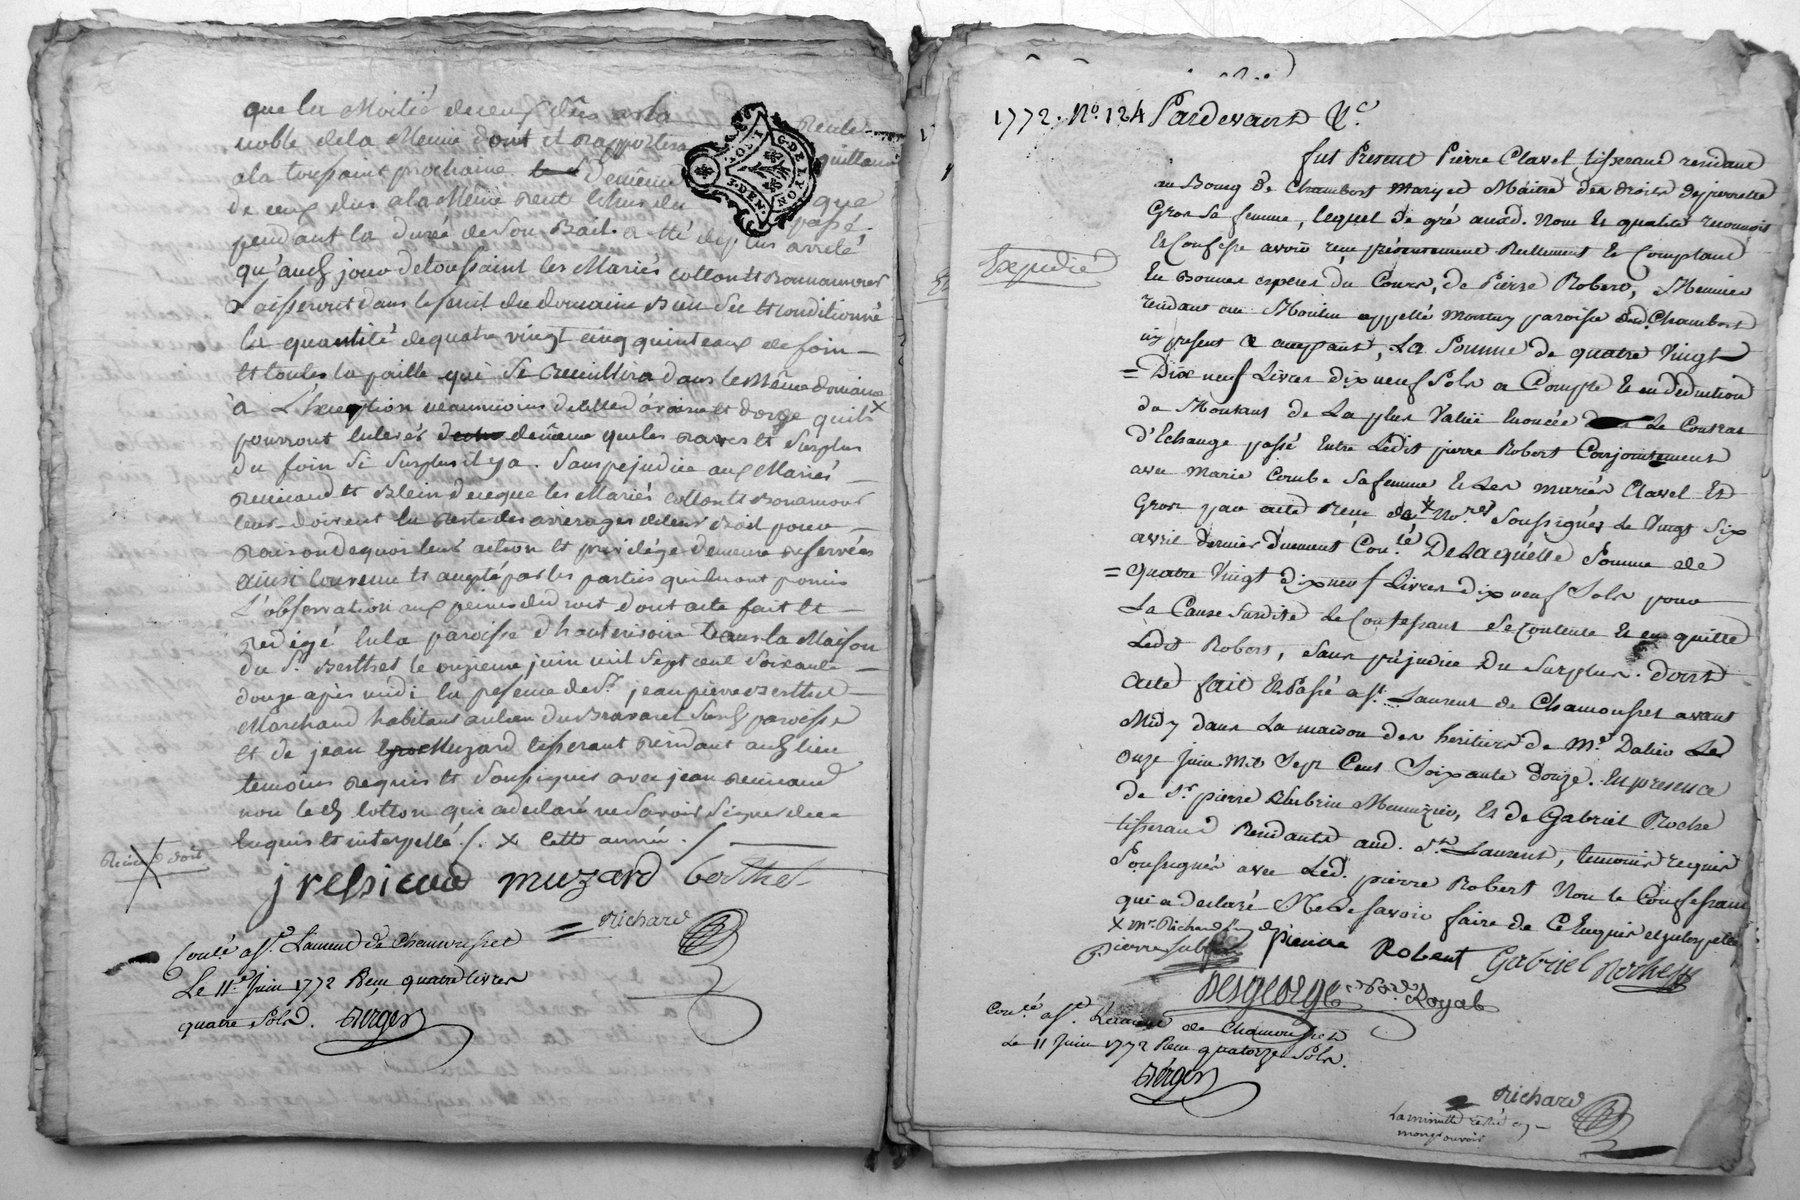 que les Moitié de ceux dûs a la
noble de la Meme dont il rapportera quittance
a la toussaint prochaine De même que
de ceux dus a la Même rente
pendant la durée de son Bail. a été de plus arrêté
qu'aud jour de toussaint les Mariés Cotton et Bonnamour
Laisseront dans le fenil du domaine Bien Sec et conditionné
la quantité de quatre vingt cinq quinteaux de foin
et toutes la paille que se recuillera dans le Même domaine
à L'héxeption neanmoins de celles d'avoine et d'orge quils
pourront enlever de même que les raves et surplus
du foin si surplus il y a. Sans pejudice aux Mariés
Ressicaud et Blein de ceque les Mariés Cotton et Bonamour
leur doivent en reste des arrerages de leur Bail pour
raison de quoi leur action et privilége demeure reservées
ainsi convenu et accepté par les parties qui en ont promis
L'observation aux peines du droit dont acte fait et
redigé en la paroisse d'hauterivoire dans la Maison
du Sr. Berthet le onzieme juin mil sept cent soixante
douze après midi en presence de Sr. jean pierre Berthet
Marchand habitant au lieu du Bravaret susd paroisse
et de jean Muzard tisserant residant aud lieu
temoins requis et soussignés avec jean Ressicaud
non led Cotton qui a declaré ne savoir signer de ce
enquis et interpellé ./. x cette année ./.
j ressicaud muzard berthet
Richard
Conlé a St. Laurent de Chamousset
Le 11e Juin 1772 Reçu quatre livres
quatre Sols. Verger
1772. No. 124 Pardevant &c
fut Present Pierre Clavel tisserand residant
au Bourg de Chambost Mary et Maitre des droits de pierrette
Gros sa femme, lequel de gré auxd. Nom et qualité reconnoit
Et Confesse avoir reçu présentement Réellement et Comptant
Expedié
En Bonnes especes du Cours, de Pierre Robert, Meunier
residant au Moulin appellé paroisse dud. Chambost
icy present et acceptant, La Somme de quatre Vingt
= Dix neuf Livres dix neuf Sols a Compte et en déduction
du Montant de La plus Value Enoncée Le Contrat
d'Echange passé Entre Ledit pierre Robert Conjointement
avec Marie Combe Safemme et Les mariés Clavel Et
Gros par acte Reçu Nores Soussignés Le Vingt Six
avril dernier duement Conlé De Laquelle Somme de
= quatre Vingt dixneuf Livres dixneuf Sols pour
La Cause Susdite Le Confessant Se Contente et en quitte
Ledit Robert, sans préjudice Du Surplus. dont
acte fait Et Passé a St. Laurent de Chamousset avant
Midy dans La maison des heritiers de Me Dalin Le
onze Juin Mil Sept Cent Soixante douze. En presence
de Sr pierre Menuzier, Et de Gabriel Roche
tisserand Residants aud. St. Laurent, temoins requis
Soussignés avec Led. pierre Robert Non le Confessant
qui a declaré Ne Le savoir faire de Ce Enquis et interpellé
x Me Richard
pierre pierre Robert Gabriel Roche
Desgeorge Nore Royal
Conlé a St. Laurent de Chamousset
Le 11 Juin 1772 Reçu quatorze Sols.
Verger
Richard
La minutte restée en
mon pouvoir